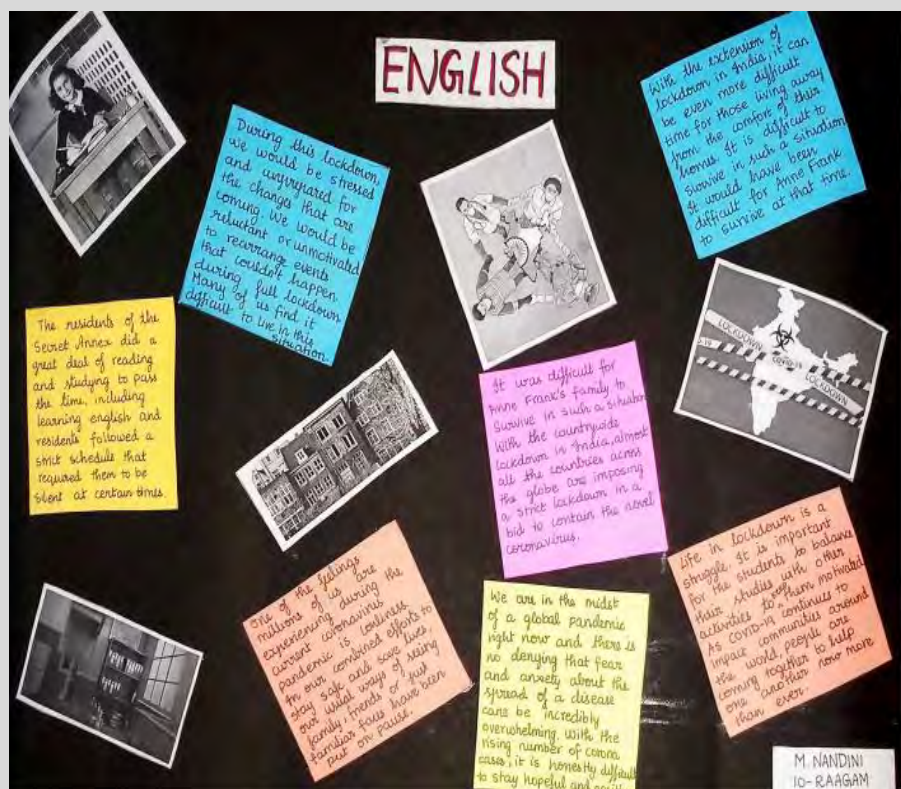 ENGLISH
During this lockdown,
we would be stressed
and unprepared for
the changes that are
coming. We would be
reluctant or unmotivated
to rearrange events
that couldn't happen
during full lockdown
Many of us find it
difficult to live in this
situation.
With the extension of
lockdown in India, it can
be even more difficult
time for those living away
from the comfort of their
homes. It is difficult to
survive in such a situation
It would have been
difficult for Anne Frank
to survive at that time.
The residents of the
Secret Annex did a
great deal of reading
and studying to pass
the time, including
learning english and
residents followed a
strict schedule that
required them to be
silent at certain times.
It was difficult for
Anne Frank's family to
survive in such a situation
With the countrywide
lockdown in India, almost
all the countries across
the globe are imposing
a strict lockdown in a
bid to contain the novel
coronavirus.
LOCKDOWN
COVID-19
LOCKDOWN
One of the feelings
millions of us are
experiencing during the
current coronavirus
pandemic is lonliness
In our combined efforts to
stay safe and save lives,
our usual ways of seeing
family, friends or just
familiar faces have been
put on pause.
We are in the midst
of a global pandemic
right now and there is
no denying that fear
and anxiety about the
spread of a disease
cane be incredibly
overwhelming. With the
rising number of corona
cases, it is honestly difficult
to stay hopeful and
Life in lockdown is a
struggle. It is important
for the students to balance
their studies with other
activities to keep them motivated
As COVID-19 continues to
impact communities around
the world, people are
coming together to help
one another now more
than ever.
M. NANDINI
10-RAAGAM